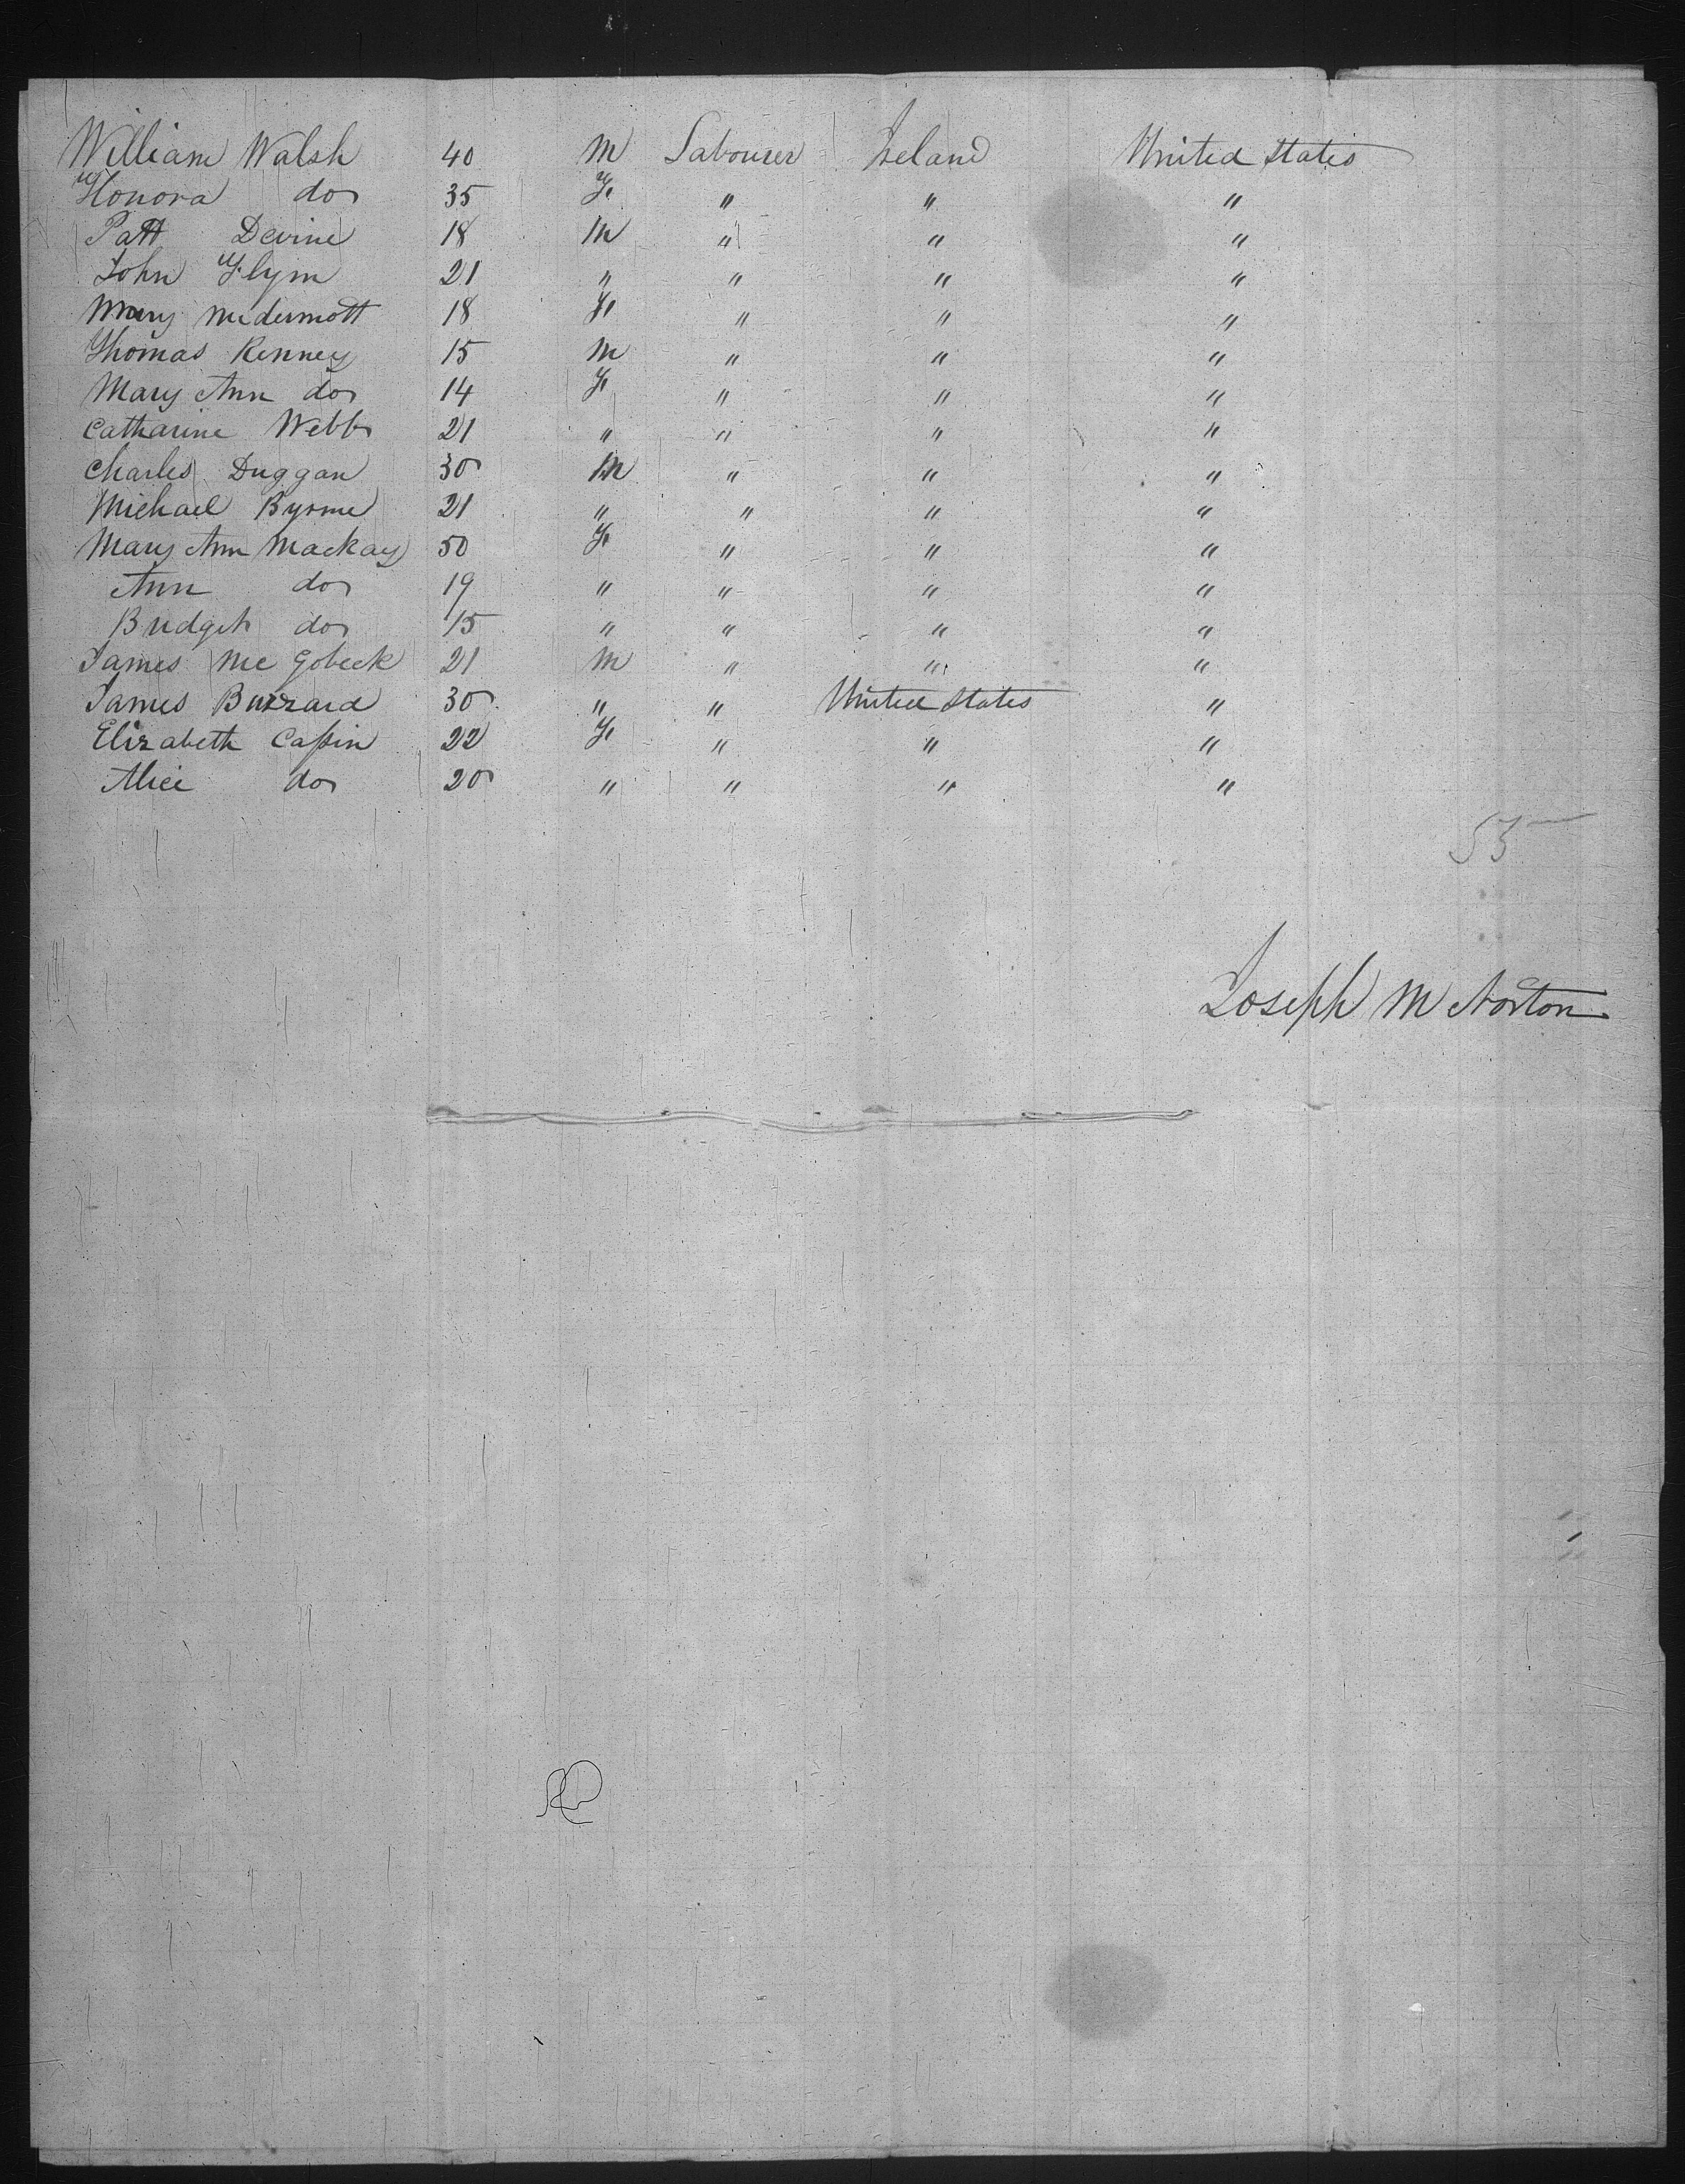 William Walsh 40 M Labourer Ireland United States
Honora do 35 F " " "
Patt Devine 18 M " " "
John Flynn 21 " " " "
Mary McDermott 18 F " " "
Thomas Kenney 15 M " " "
Mary Ann do 14 F " " "
Catharine Webb 21 " " " "
Charles Duggan 30 M " " "
Michael Byrne 21 " " " "
Mary Ann Mackay 50 F " " "
Ann do 19 " " " "
Bridget do 15 " " " "
James Mc 21 M " " "
James Buzzard 30 " " United States "
Elizabeth Cassin 22 F " " "
Alice do 20 " " " "
53
Joseph M Norton